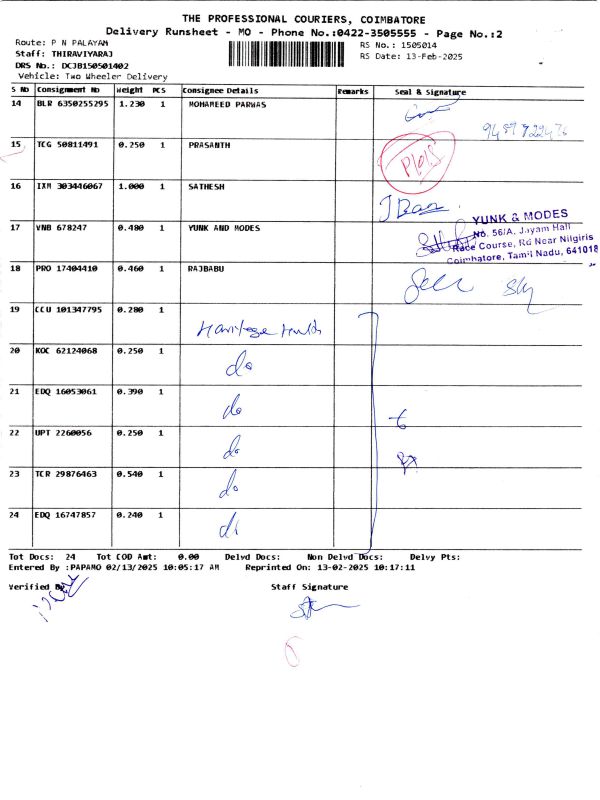 THE PROFESSIONAL COURIERS, COIMBATORE
Delivery Runsheet - MO - Phone No.:0422-3505555 - Page No.:2
Route: P N PALAYAM
RS No.: 1505014
Staff: THIRAVIYARAJ
RS Date: 13-Feb-2025
DRS No.: DCJB150501402
Vehicle: Two Wheeler Delivery
S No Consignment No Weight PCS Consignee Details Remarks Seal & Signature
14 BLR 6350255295 1.230 1 MOHAMEED PARWAS
15 TCG 50811491 0.250 1 PRASANTH
16 IXM 303446067 1.000 1 SATHESH
17 VNB 678247 0.480 1 YUNK AND MODES
YUNK & MODES
No. 56/A, Jayam Hall
Race Course, Rd Near Nilgiris
Coimbatore, Tamil Nadu, 641018
18 PRO 17404410 0.460 1 RAJBABU
19 CCU 101347795 0.280 1
20 KOC 62124068 0.250 1 do
21 EDQ 16053061 0.390 1 do
22 UPT 2260056 0.250 1 do
23 TCR 29876463 0.540 1 do
24 EDQ 16747857 0.240 1 do
Tot Docs: 24 Tot COD Amt: 0.00 Delvd Docs: Non Delvd Docs: Delvy Pts:
Entered By :PAPAMO 02/13/2025 10:05:17 AM Reprinted On: 13-02-2025 10:17:11
Verified By
Staff Signature